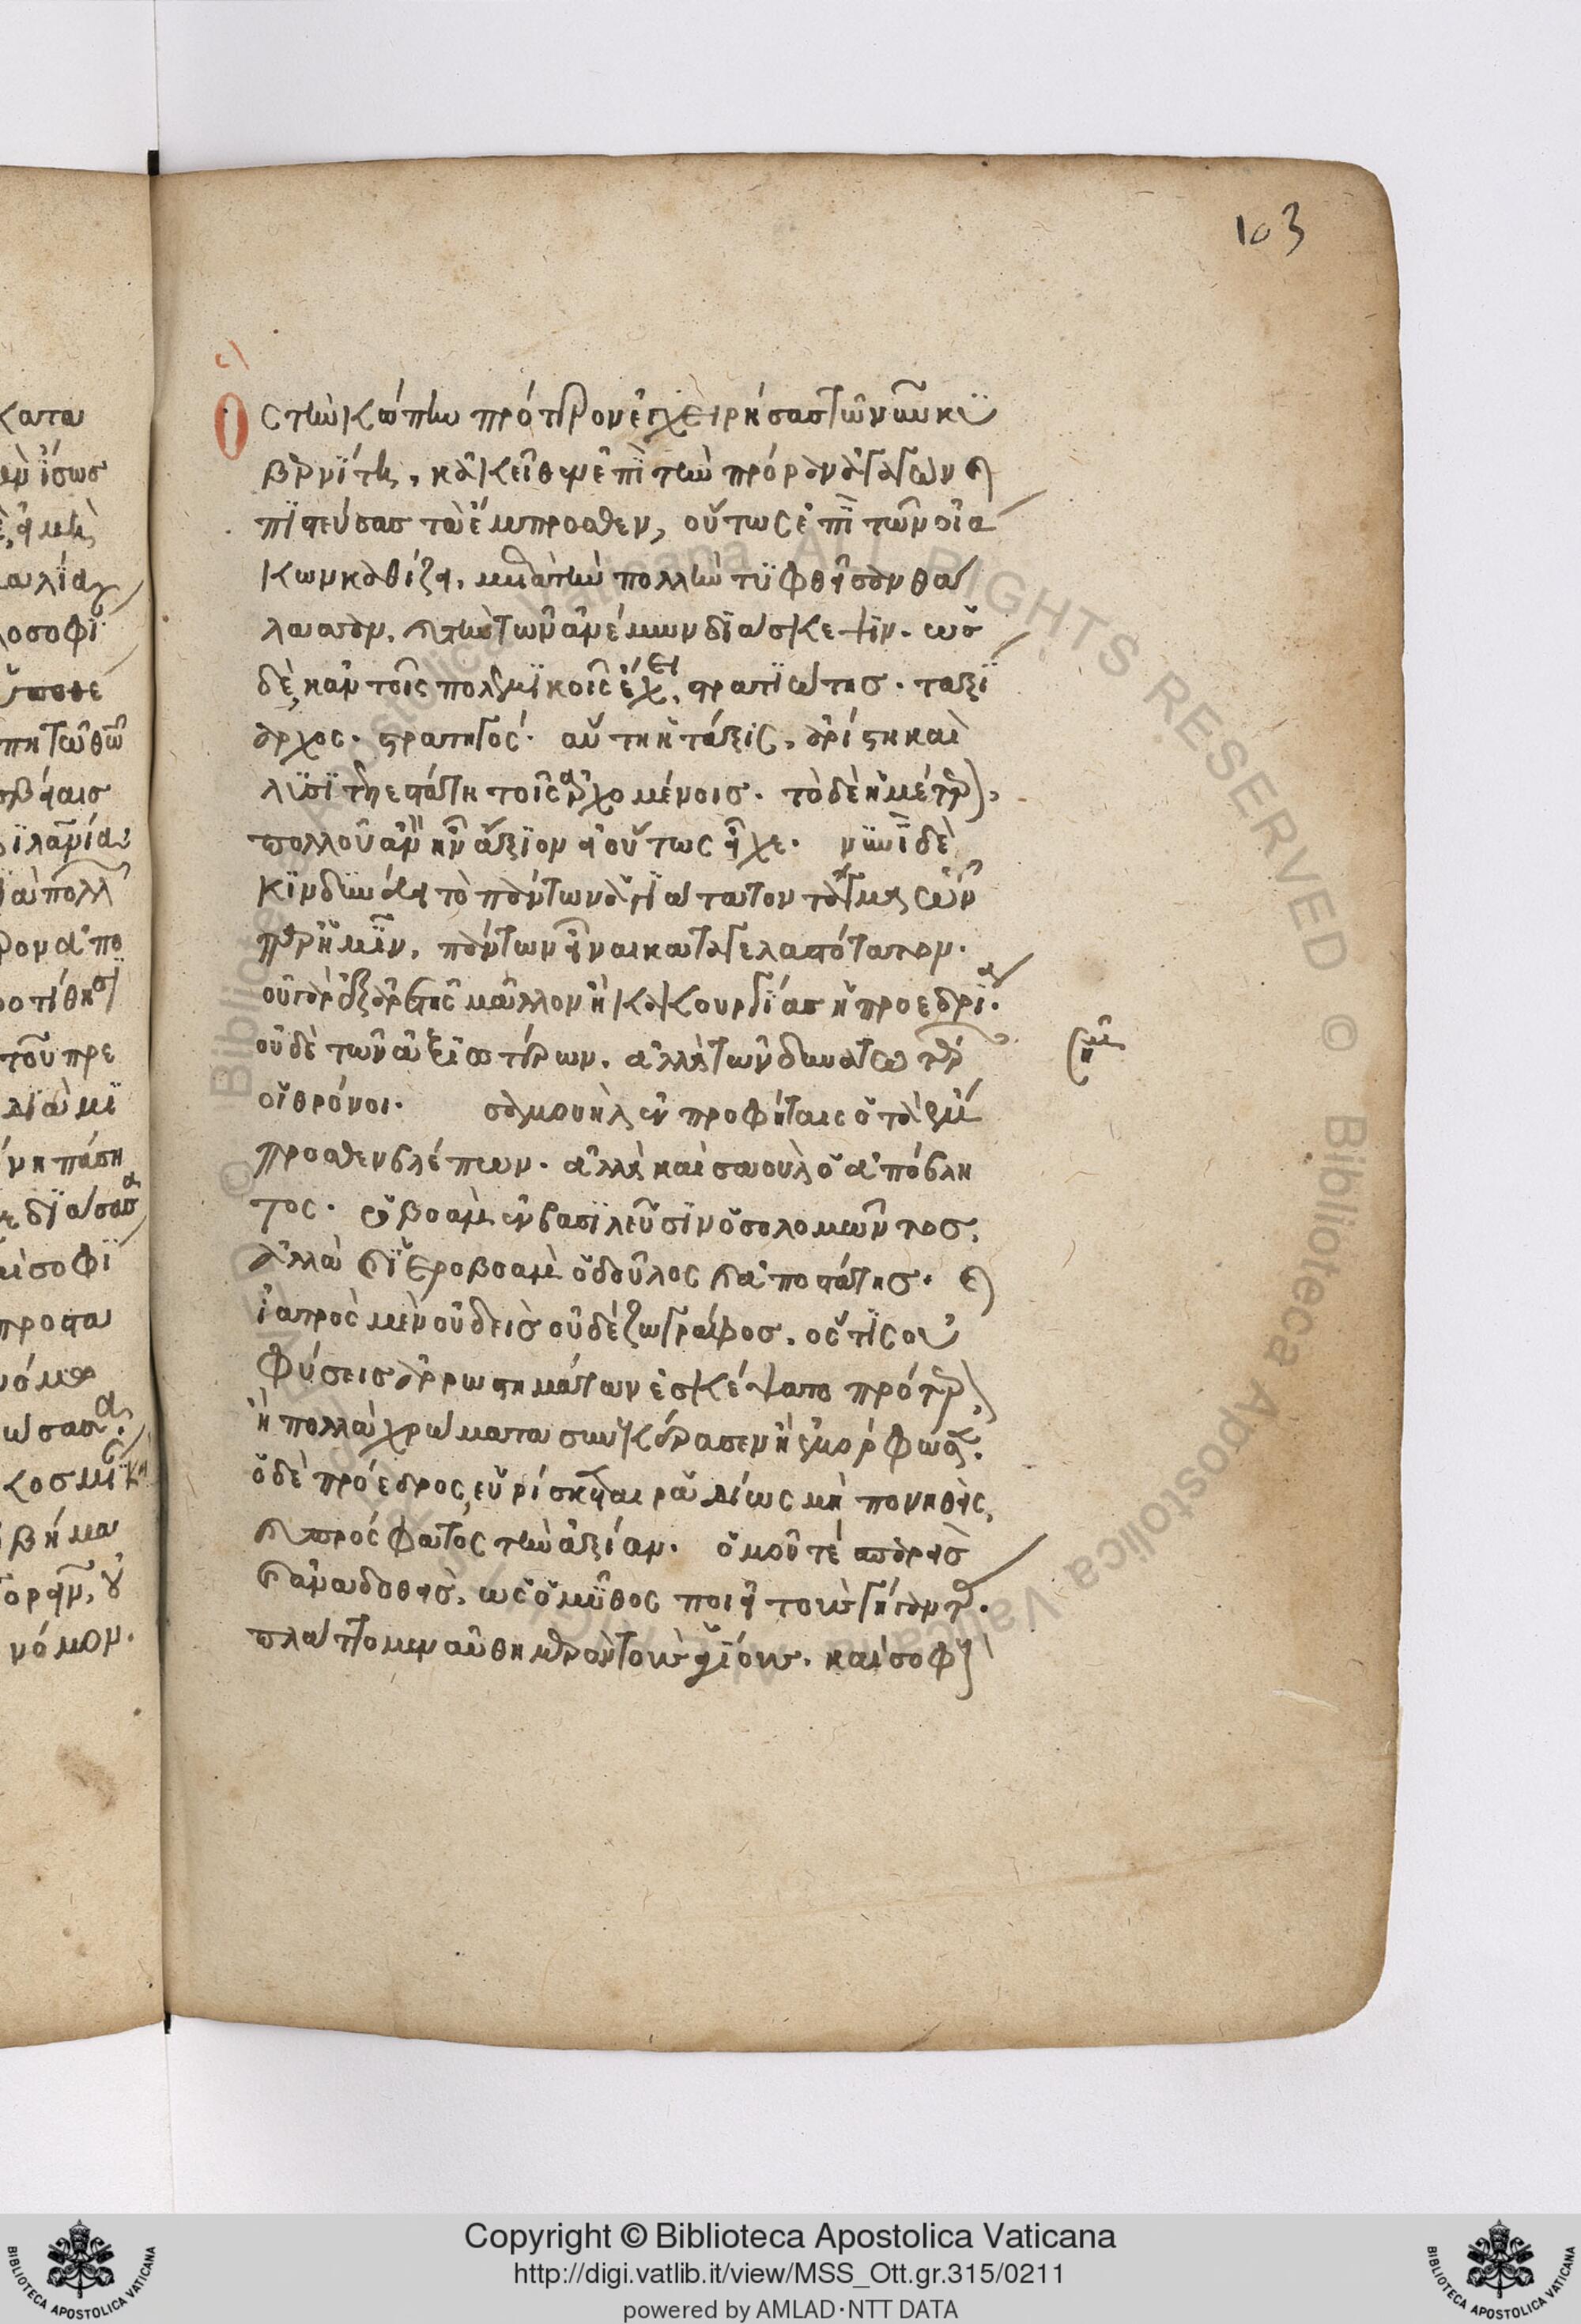 103
Ὃς τὴν κώπην πρότερον ἐγχειρήσας τῶν νῦν κυ
βερνήτην, κἀκεῖθεν ἐπὶ τὴν πρώραν ἀγαγὼν καὶ
πιστεύσας τὰ ἔμπροσθεν, οὕτως ἐπὶ τῶν οἰά
κων καθίζει, μετὰ τὴν πολλὴν τυφθεῖσαν θά
λασσαν, καὶ τὴν τῶν ἀνέμων διάσκεψιν. ὡς
δὲ, κἀν τοῖς πολεμικοῖς ἔχει, στρατιώτης. ταξί
αρχος. στρατηγός. αὕτη ἡ τάξις, ἀρίστη καὶ
λυσιτελεστάτη τοῖς ἀρχομένοις. τὸ δὲ ἡμέτερον,
πολλοῦ ἂν ἦν ἄξιον εἰ οὕτως εἶχε. νυνὶ δὲ
κινδυνεύει τὸ πάντων ἁγιώτατον τάγμα τῶν
παρ' ἡμῖν, πάντων εἶναι καταγελαστότατον.
οὐ γὰρ ἐξ ἀρετῆς μᾶλλον ἢ κακουργίας ἡ προεδρία.
οὐδὲ τῶν ἀξιωτέρων, ἀλλὰ τῶν δυνατωτέρων
οἱ θρόνοι. σαμουὴλ ἐν προφήταις ὁ τὰ ἔμ
προσθεν βλέπων. ἀλλὰ καὶ σαοὺλ ὁ ἀπόβλη
τος. ῥοβοὰμ ἐν βασιλεῦσιν ὁ σολομῶντος.
ἀλλὰ καὶ ἱεροβοὰμ ὁ δοῦλος καὶ ἀποστάτης. καὶ
ἰατρὸς μὲν οὐδεὶς οὐδὲ ζωγράφος, ὅστις οὐ
φύσεις ἀρρωστημάτων ἐσκέψατο πρότερον,
ἢ πολλὰ χρώματα συνεκέρασεν ἢ ἐμόρφωσεν.
ὁ δὲ πρόεδρος, εὑρίσκεται ῥᾳδίως μὴ πονηθεὶς,
καὶ πρόσφατος τὴν ἀξίαν. ὁμοῦ τὲ σπαρεὶς
καὶ ἀναδοθεὶς, ὡς ὁ μῦθος ποιεῖ τοὺς γίγαντας.
πλάττομεν αὐθημερὸν τοὺς ἁγίους. καὶ σοφοὺς